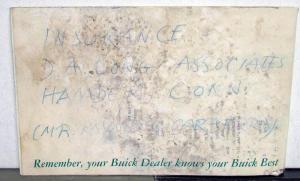 INSURANCE
D.A. LONG ASSOCIATES
HAMDEN CONN.
(MR.
Remember, your Buick Dealer knows your Buick Best